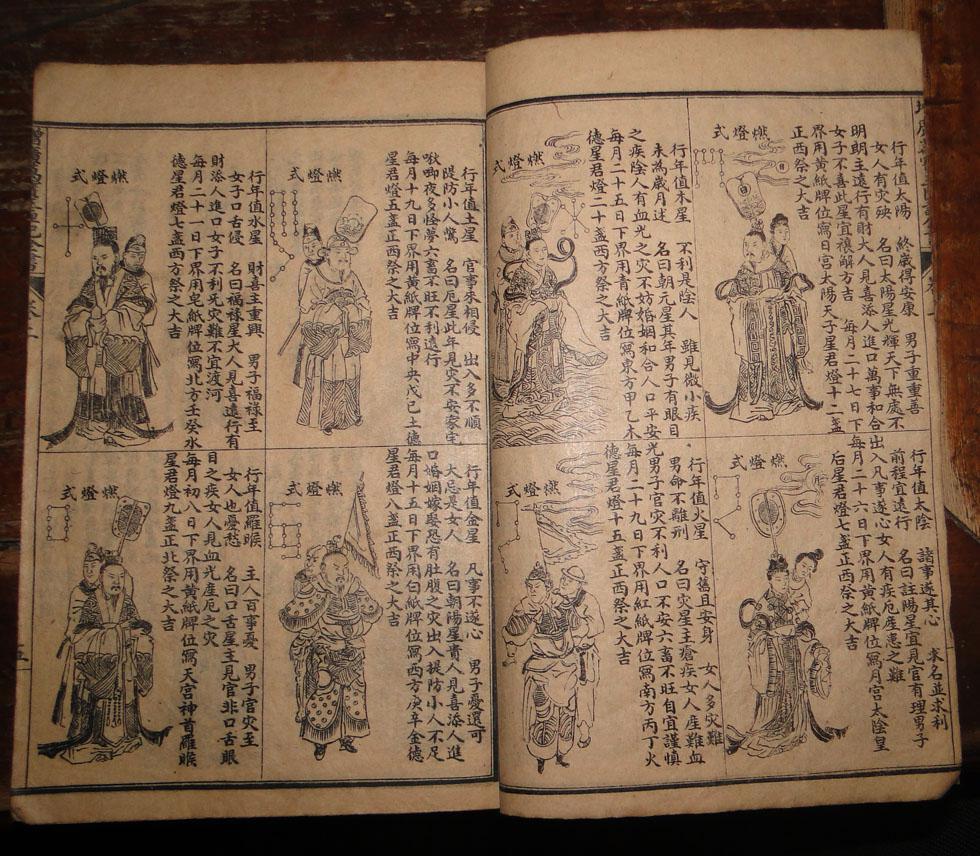 燃燈式
行年值太陽　終歲得安康　男子重重喜
女人有災殃　名曰太陽星光輝天下無處不
明朗主遠行有財大人見喜添人進口萬事和合
女子不喜此星宜禳解方吉　每月二十七日下
界用黃紙牌位寫日宮太陽天子星君燈十二盞
正西祭之大吉
燃燈式
行年值木星　不利是陰人　雖見微小疾
未為歲月迍　名曰朝元星其年男子有眼目
之疾陰人有血光之災不妨婚姻和合人口平安
每月二十五日下界用青紙牌位寫東方甲乙木
德星君燈二十盞西方祭之大吉
燃燈式
行年值太陰　諸事遂其心　求名並求利
前程宜遠行　名曰註陽星宜見官有理男子
出入凡事遂心女人有疾厄產患之難
每月二十六日下界用黃紙牌位寫月宮太陰皇
后星君燈七盞正西祭之大吉
燃燈式
行年值火星　守舊且安身　女人多災難
男命不離刑　名曰災星主瘡疾女人產難血
光男子官災不利人口不安六畜不旺自宜謹慎
每月二十九日下界用紅紙牌位寫南方丙丁火
德星君燈十五盞正西祭之大吉
燃燈式
行年值土星　官事來相侵　出入多不順
隄防小人驚　名曰厄星此年見災不安家宅
啾唧夜多怪夢六畜不旺不利遠行
每月十九日下界用黃紙牌位寫中央戊己土德
星君燈五盞正西祭之大吉
燃燈式
行年值水星　財喜主重興　男子福祿至
女子口舌侵　名曰福祿星大人見喜遠行有
財添人進口女子不利死災難不宜渡河
每月二十一日下界用皂紙牌位寫北方壬癸水
德星君燈七盞西方祭之大吉
燃燈式
行年值金星　凡事不遂心　男子憂還可
大忌是女人　名曰朝陽星貴人見喜添人進
口婚姻嫁娶恐有肚腹之災出入提防小人不足
每月十五日下界用白紙牌位寫西方庚辛金德
星君燈八盞正西祭之大吉
燃燈式
行年值羅睺　主人百事憂　男子官災至
女人也憂愁　名曰口舌星主見官非口舌眼
目之疾女人見血光產厄之災
每月初八日下界用黃紙牌位寫天宮神首羅睺
星君燈九盞正北祭之大吉
五